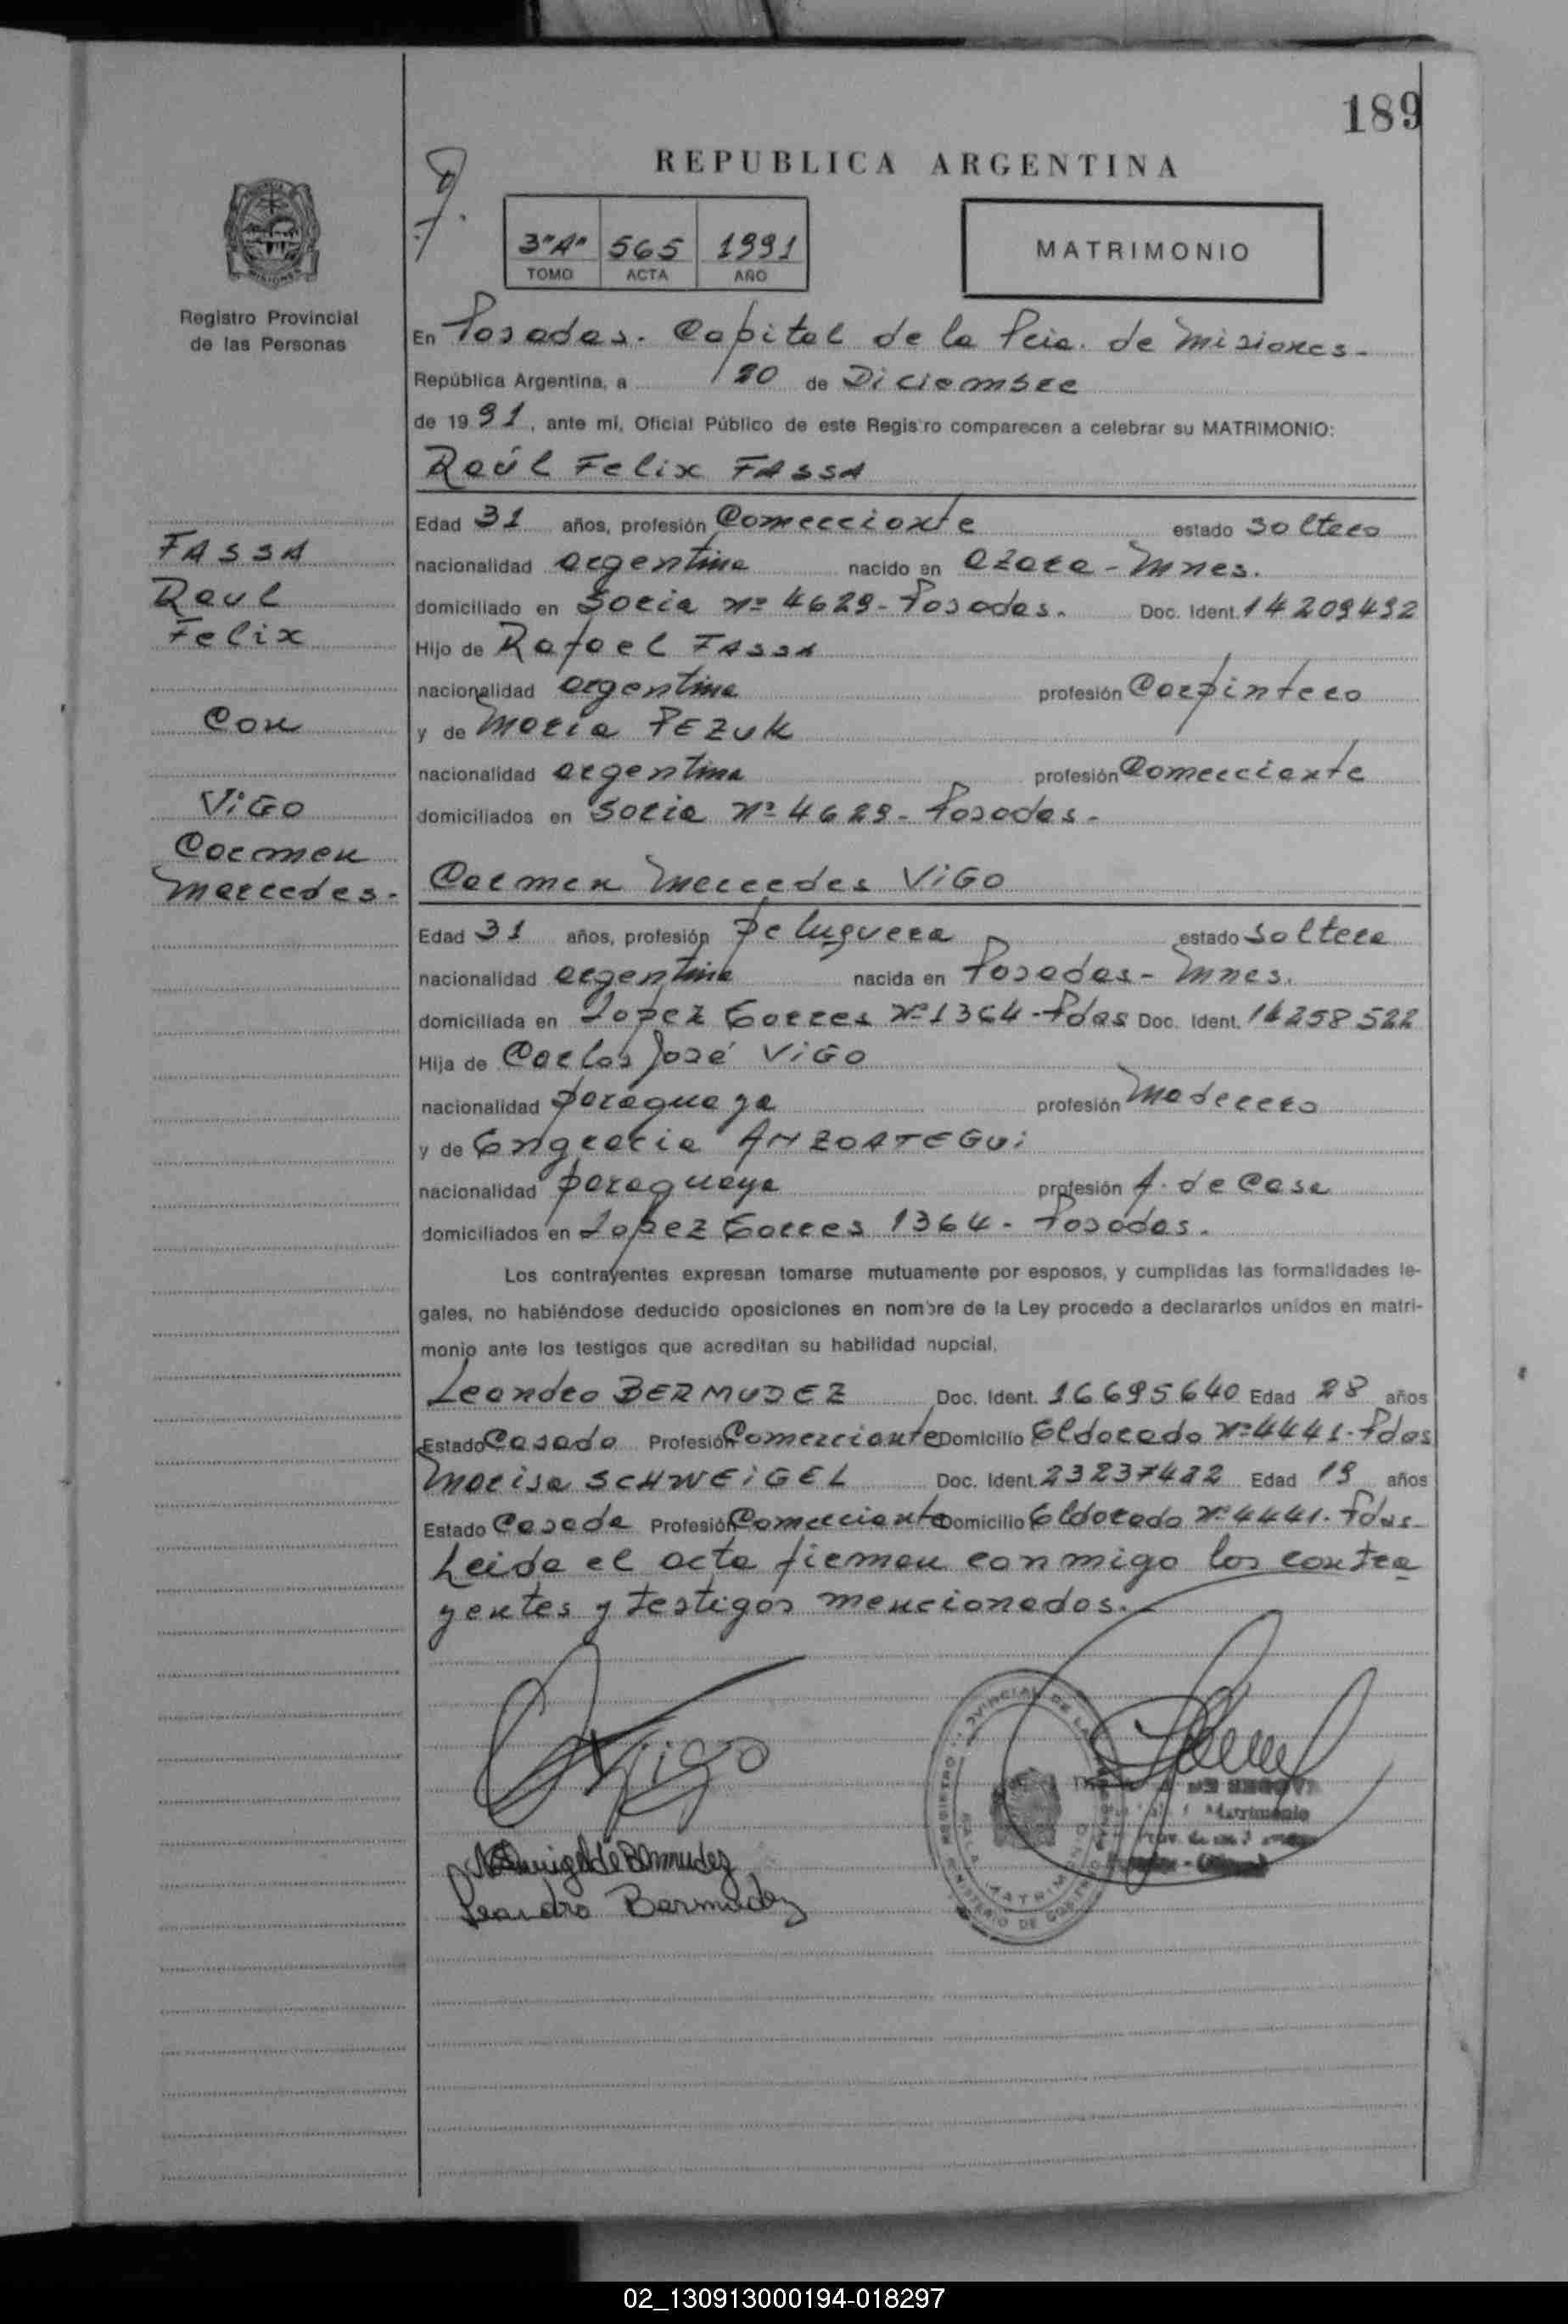 189
REPUBLICA ARGENTINA
3"A" 565 1991
TOMO ACTA AÑO
MATRIMONIO
MISIONES
Registro Provincial
de las Personas
En Posadas. Capital de la Pcia. de Misiones-
República Argentina, a 20 de Diciembre
de 1991, ante mi, Oficial Público de este Registro comparecen a celebrar su MATRIMONIO:
Raúl Felix FASSA
Edad 31 años, profesión Comerciante estado soltero
nacionalidad argentina nacido en Azara-Mnes.
domiciliado en Soria Nº 4629-Posadas. Doc. Ident. 14209492
Hijo de Rafael FASSA
nacionalidad argentina profesión Carpintero
y de Maria PEZUK
nacionalidad argentina profesión Comerciante
domiciliados en Soria Nº 4629- Posadas-
FASSA
Raul
Felix
Con
ViGO
Carmen
Mercedes-
Carmen Mercedes ViGO
Edad 31 años, profesión peluquera estado soltera
nacionalidad argentina nacida en Posadas- Mnes.
domiciliada en Lopez Torres Nº 1364-Pdas Doc. Ident. 14258522
Hija de Carlos José ViGO
nacionalidad paraguaya profesión Maderero
y de Engracia ANZOATEGUi
nacionalidad paraguaya profesión A. de Casa
domiciliados en Lopez Torres 1364- Posadas.
Los contrayentes expresan tomarse mutuamente por esposos, y cumplidas las formalidades le-
gales, no habiéndose deducido oposiciones en nombre de la Ley procedo a declararlos unidos en matri-
monio ante los testigos que acreditan su habilidad nupcial.
Leandro BERMUDEZ Doc. Ident. 16695640 Edad 28 años
Estado Casado Profesión Comerciante Domicilio Eldorado Nº 4441-Pdas
Marisa SCHWEiGEL Doc. Ident. 23237422 Edad 19 años
Estado Casada Profesión Comerciante Domicilio Eldorado Nº 4441. Pdas-
Leida el acta firman conmigo los contra
yentes y testigos mencionados.-
Vigo
de Bermudez
Leandro Bermudez
REGISTRO PROVINCIAL DE LAS
MINISTERIO DE GOBIERNO
SALA MATRIMONIO
Matrimonio
02_130913000194-018297